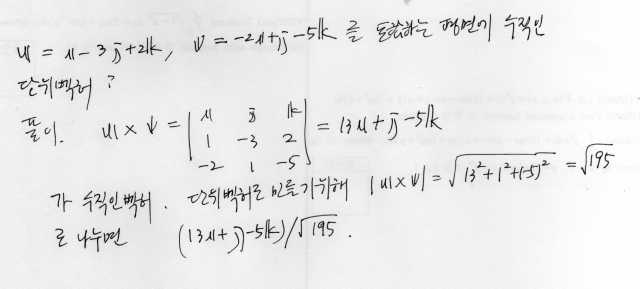 u = i - 3j + 2k, v = -2i + j - 5k 를 포함하는 평면에 수직인
단위벡터?
풀이. u × v = | i j k | = 13i + j - 5k
| 1 -3 2 |
| -2 1 -5 |
가 수직인 벡터. 단위벡터로 만들기위해 |u × v| = √(13² + 1² + (-5)²) = √195
로 나누면 (13i + j - 5k)/√195.